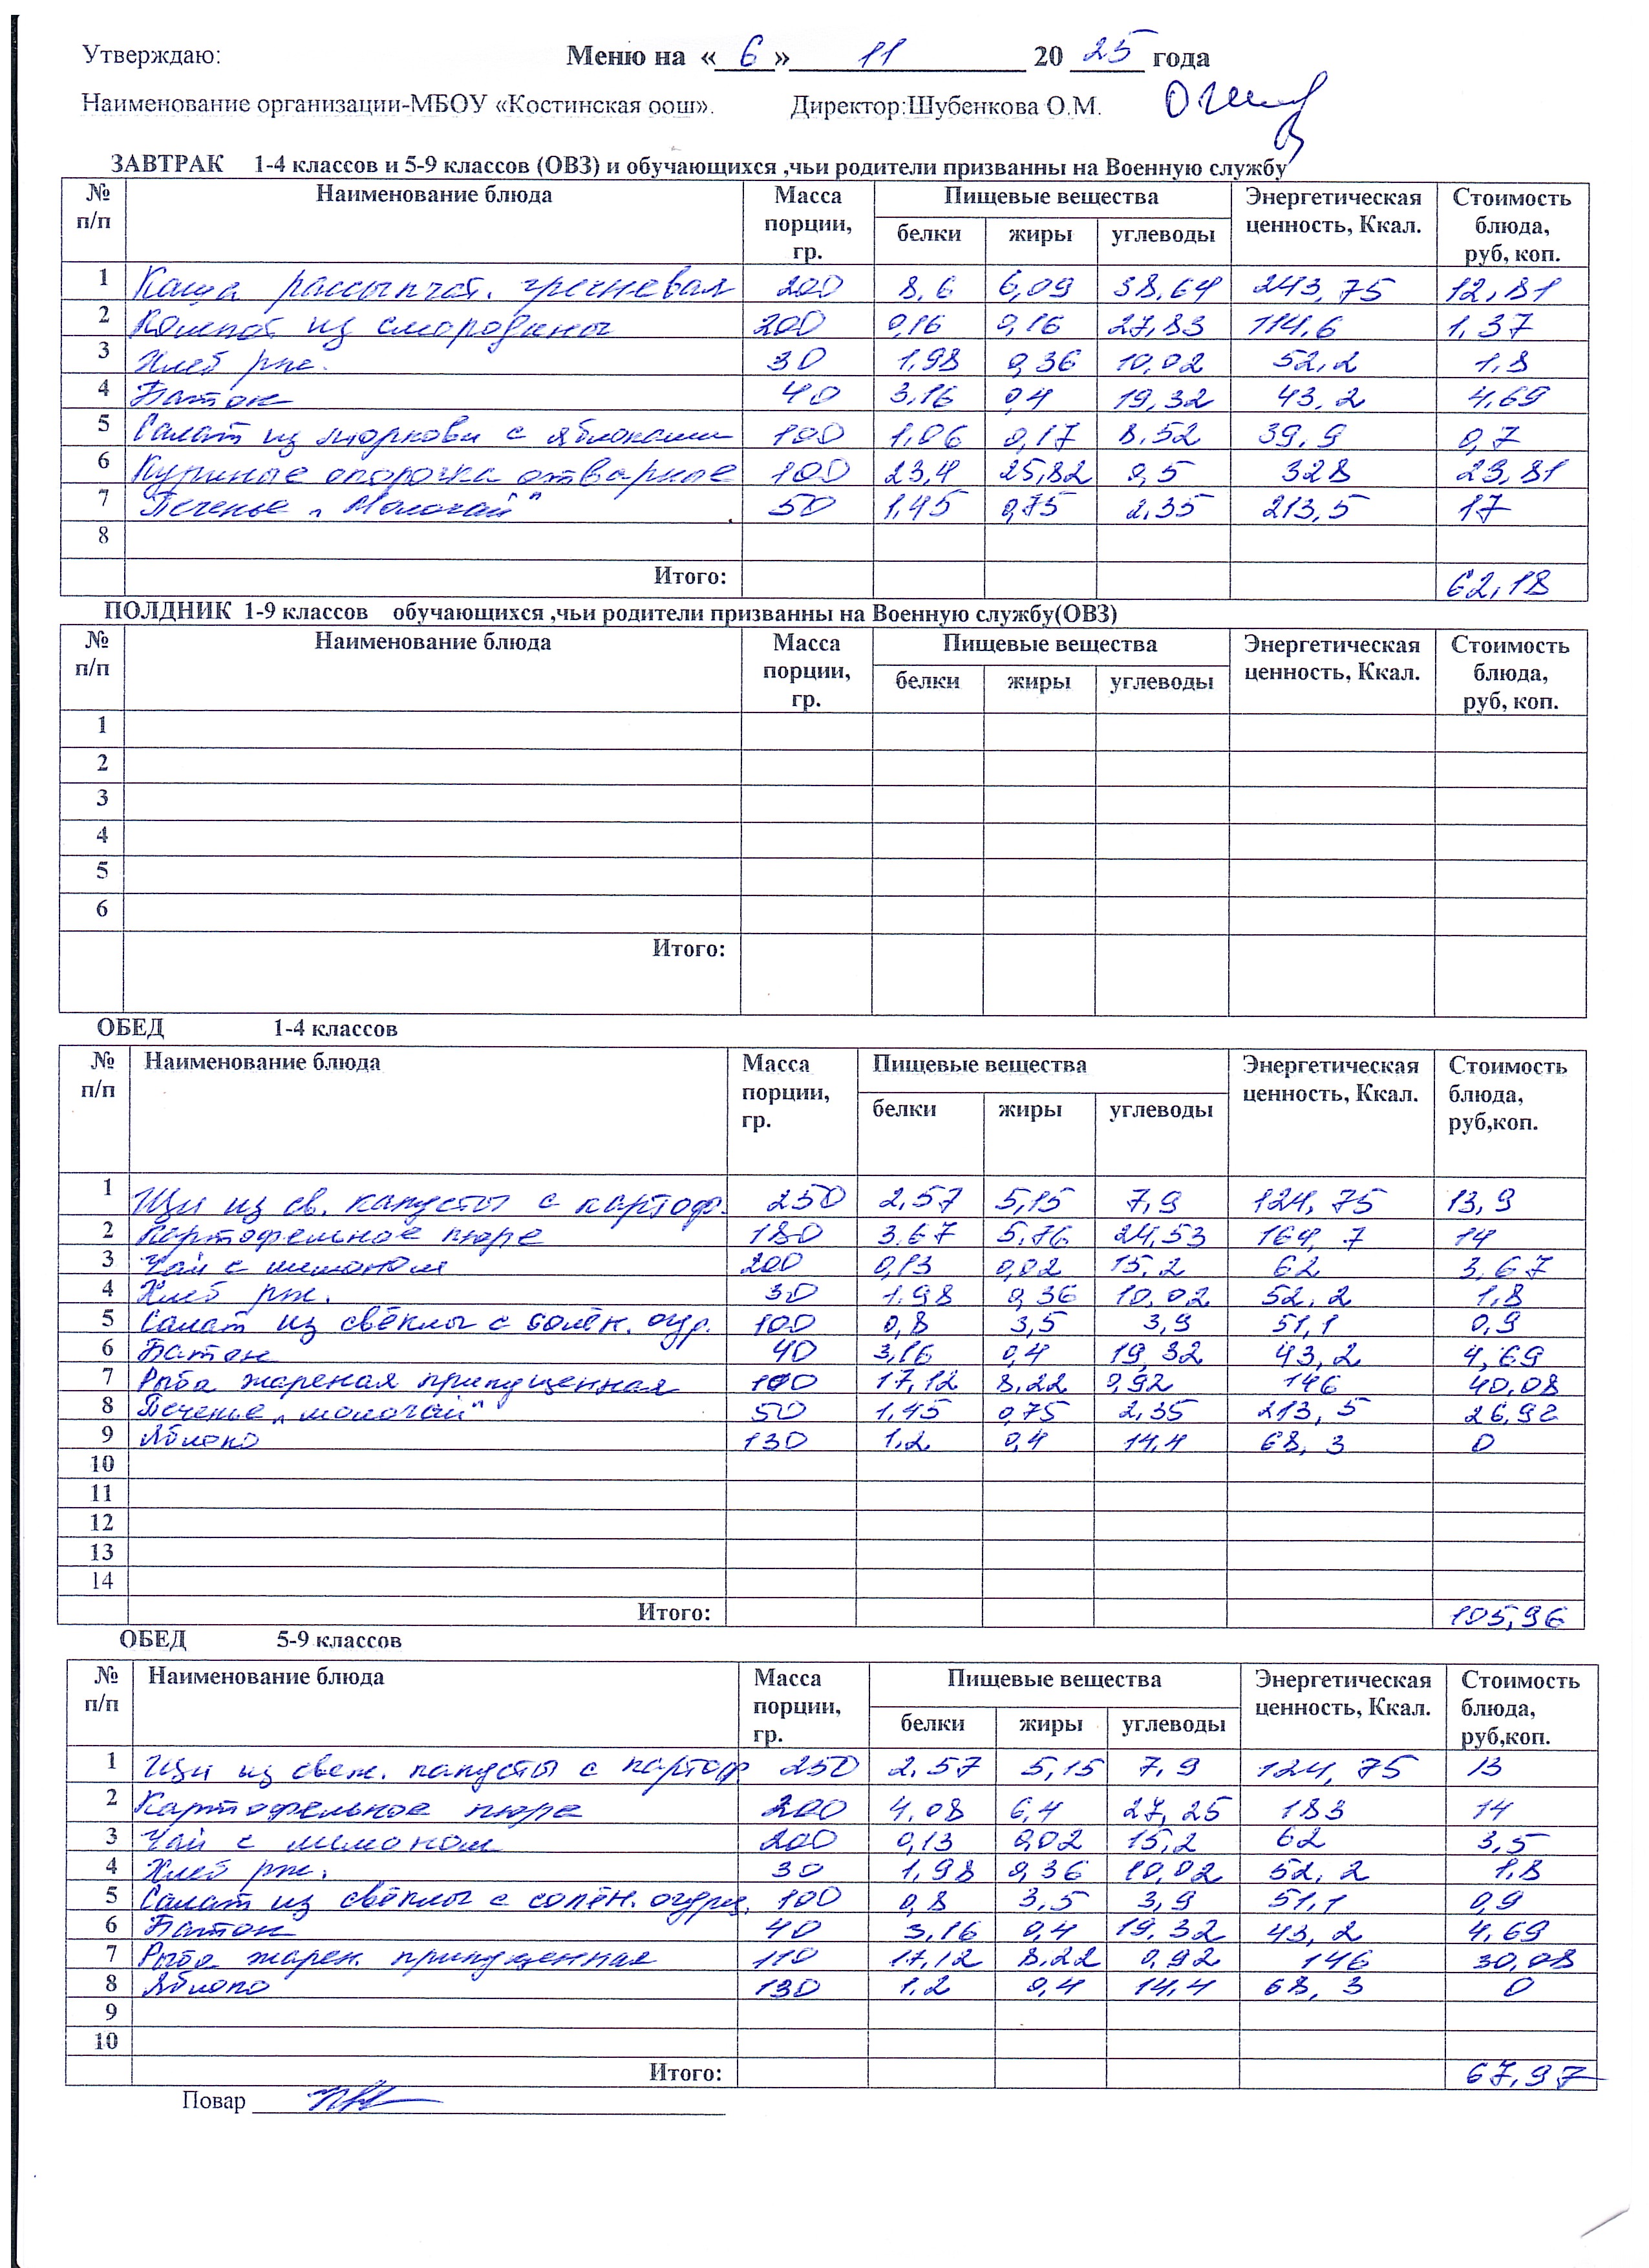 Утверждаю: Меню на « 6 » 11 20 25 года
Наименование организации-МБОУ «Костинская оош». Директор:Шубенкова О.М.
ЗАВТРАК 1-4 классов и 5-9 классов (ОВЗ) и обучающихся ,чьи родители призванны на Военную службу
№ п/п Наименование блюда Масса порции, гр. Пищевые вещества Энергетическая ценность, Ккал. Стоимость блюда, руб, коп.
белки жиры углеводы
1 Каша рассыпчат. гречневая 200 8,6 6,09 38,64 243,75 12,81
2 Компот из смородины 200 0,16 0,16 27,83 114,6 1,37
3 Хлеб рж. 30 1,98 0,36 10,02 52,2 1,8
4 Батон 40 3,16 0,4 19,32 43,2 4,69
5 Салат из моркови с яблоками 100 1,06 0,17 8,52 39,9 0,7
6 Куриные окорочка отварные 100 23,4 25,82 0,5 328 23,81
7 Печенье „Молочай" 50 1,45 0,75 2,35 213,5 17
8
Итого: 62,18
ПОЛДНИК 1-9 классов обучающихся ,чьи родители призванны на Военную службу(ОВЗ)
№ п/п Наименование блюда Масса порции, гр. Пищевые вещества Энергетическая ценность, Ккал. Стоимость блюда, руб, коп.
белки жиры углеводы
1
2
3
4
5
6
Итого:
ОБЕД 1-4 классов
№ п/п Наименование блюда Масса порции, гр. Пищевые вещества Энергетическая ценность, Ккал. Стоимость блюда, руб,коп.
белки жиры углеводы
1 Щи из св. капусты с картоф. 250 2,57 5,15 7,9 124,75 13,9
2 Картофельное пюре 180 3.67 5,76 24,53 164,7 14
3 Чай с лимоном 200 0,13 0,02 15,2 62 3,67
4 Хлеб рж. 30 1,98 0,36 10,02 52,2 1,8
5 Салат из свёклы с солён. огур. 100 0,8 3,5 3,9 51,1 0,9
6 Батон 40 3,16 0,4 19,32 43,2 4,69
7 Рыба жареная припущенная 100 17,12 8,22 0,92 146 40,08
8 Печенье „молочай" 50 1,45 0,75 2,35 213,5 26,92
9 Яблоко 130 1,2 0,4 14,4 68,3 0
10
11
12
13
14
Итого: 105,96
ОБЕД 5-9 классов
№ п/п Наименование блюда Масса порции, гр. Пищевые вещества Энергетическая ценность, Ккал. Стоимость блюда, руб,коп.
белки жиры углеводы
1 Щи из свеж. капусты с картоф 250 2,57 5,15 7,9 124,75 13
2 Картофельное пюре 200 4,08 6,4 27,25 183 14
3 Чай с лимоном 200 0,13 0,02 15,2 62 3,5
4 Хлеб рж. 30 1,98 0,36 10,02 52,2 1,8
5 Салат из свёклы с солён. огурц. 100 0,8 3,5 3,9 51,1 0,9
6 Батон 40 3,16 0,4 19,32 43,2 4,69
7 Рыба жарен. припущенная 110 17,12 8,22 0,92 146 30,08
8 Яблоко 130 1,2 0,4 14,4 68,3 0
9
10
Итого: 67,97
Повар